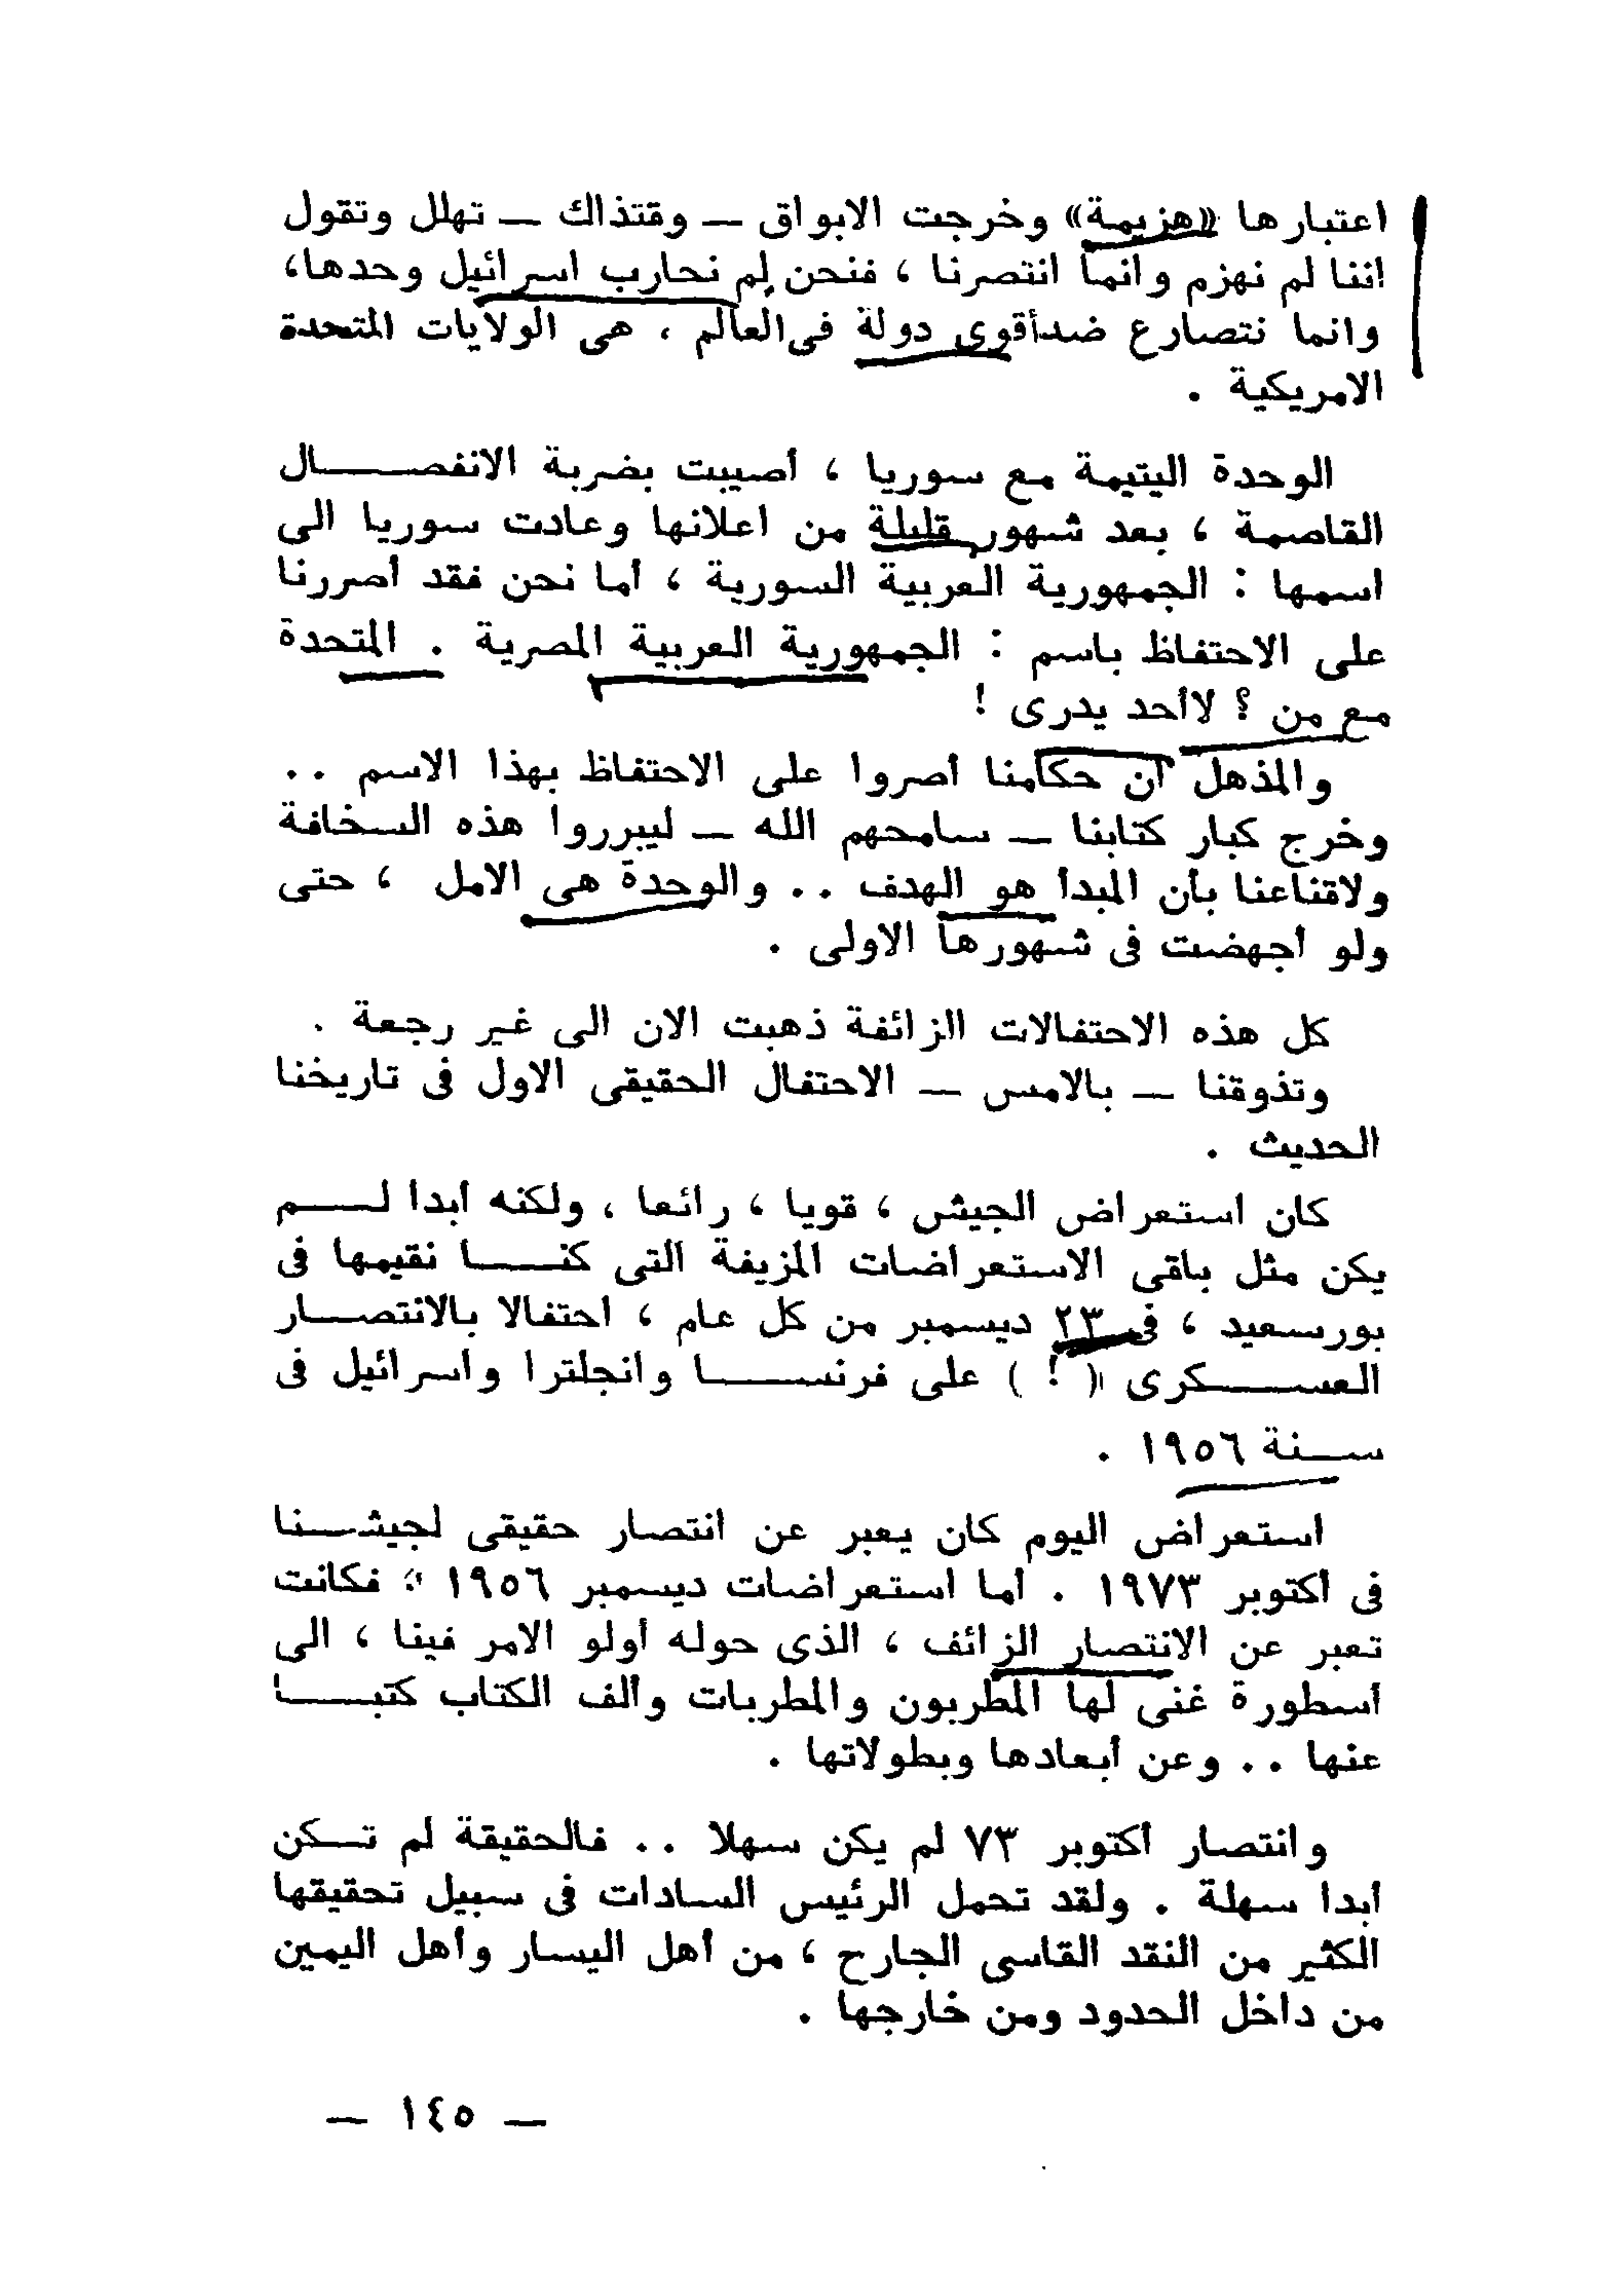 اعتبارها «هزيمة» وخرجت الابواق — وقتذاك — تهلل وتقول
اننا لم نهزم وانما انتصرنا ، فنحن لم نحارب اسرائيل وحدها،
وانما نتصارع ضدأقوى دولة فى العالم ، هى الولايات المتحدة
الامريكية .
الوحدة اليتيمة مع سوريا ، أصيبت بضربة الانفصال
القاصمة ، بعد شهور قليلة من اعلانها وعادت سوريا الى
اسمها : الجمهورية العربية السورية ، أما نحن فقد أصررنا
على الاحتفاظ باسم : الجمهورية العربية المصرية . المتحدة
مع من ؟ لاأحد يدرى !
والمذهل أن حكامنا أصروا على الاحتفاظ بهذا الاسم ..
وخرج كبار كتابنا — سامحهم الله — ليبرروا هذه السخافة
ولاقناعنا بأن المبدأ هو الهدف .. والوحدة هى الامل ، حتى
ولو أجهضت فى شهورها الاولى .
كل هذه الاحتفالات الزائفة ذهبت الان الى غير رجعة .
وتذوقنا — بالامس — الاحتفال الحقيقى الاول فى تاريخنا
الحديث .
كان استعراض الجيش ، قويا ، رائعا ، ولكنه أبدا لم
يكن مثل باقى الاستعراضات المزيفة التى كنا نقيمها فى
بورسعيد ، فى ٢٣ ديسمبر من كل عام ، احتفالا بالانتصار
العسكرى ( ! ) على فرنسا وانجلترا واسرائيل فى
سنة ١٩٥٦ .
استعراض اليوم كان يعبر عن انتصار حقيقى لجيشنا
فى أكتوبر ١٩٧٣ . أما استعراضات ديسمبر ١٩٥٦ ، فكانت
تعبر عن الانتصار الزائف ، الذى حوله أولو الامر فينا ، الى
أسطورة غنى لها المطربون والمطربات وألف الكتاب كتبا
عنها .. وعن أبعادها وبطولاتها .
وانتصار أكتوبر ٧٣ لم يكن سهلا .. فالحقيقة لم تكن
أبدا سهلة . ولقد تحمل الرئيس السادات فى سبيل تحقيقها
الكثير من النقد القاسى الجارح ، من أهل اليسار وأهل اليمين
من داخل الحدود ومن خارجها .
— ١٤٥ —